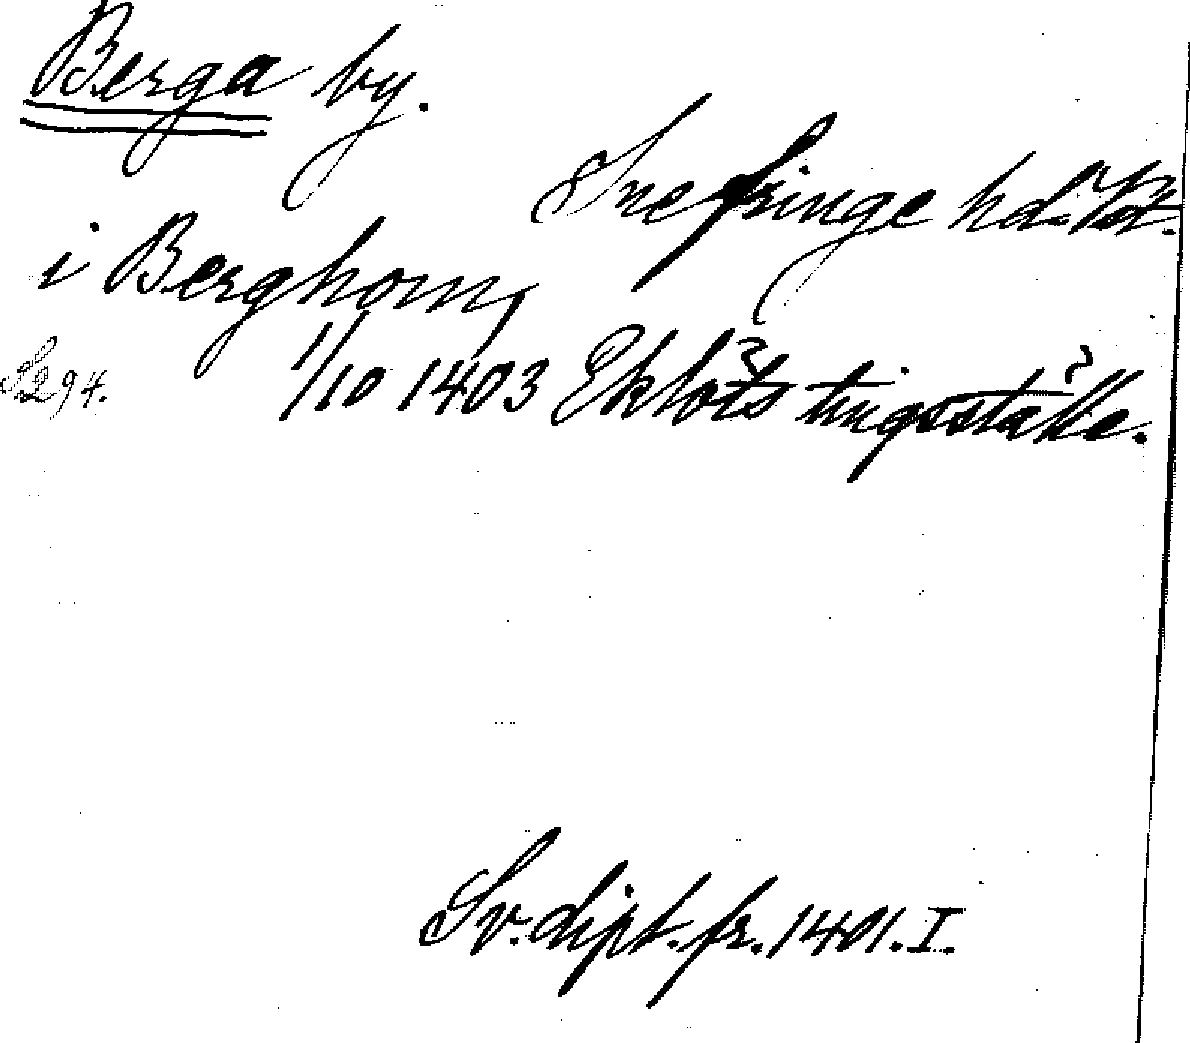 Berga by.
Snefringe hd. Vstm.
i Berghom,
S. 294. 1/10 1403 Eklöts tingsställe.
Sv. dipl. fr. 1401. I.